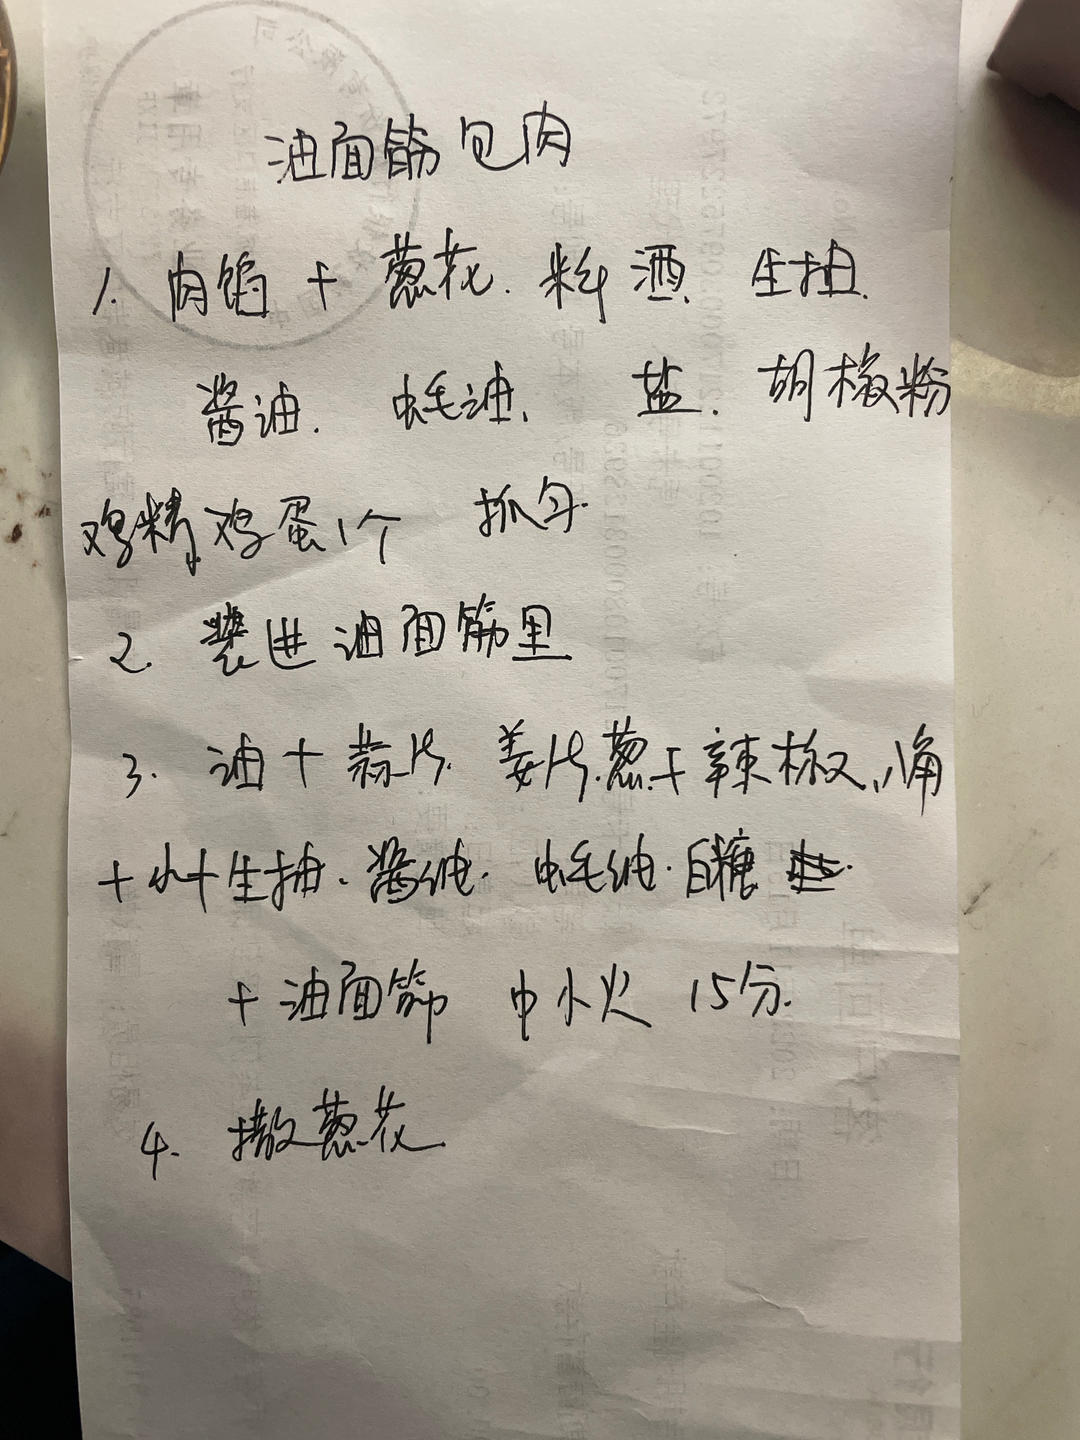 油面筋包肉
1. 肉馅 + 葱花. 料酒. 生抽.
酱油. 蚝油. 盐. 胡椒粉
鸡精, 鸡蛋1个 抓匀.
2. 装进油面筋里
3. 油 + 蒜片. 姜片. 葱. 干辣椒、
+ 水 + 生抽. 酱油. 蚝油. 白糖
+ 油面筋 中小火 15分.
4. 撒葱花